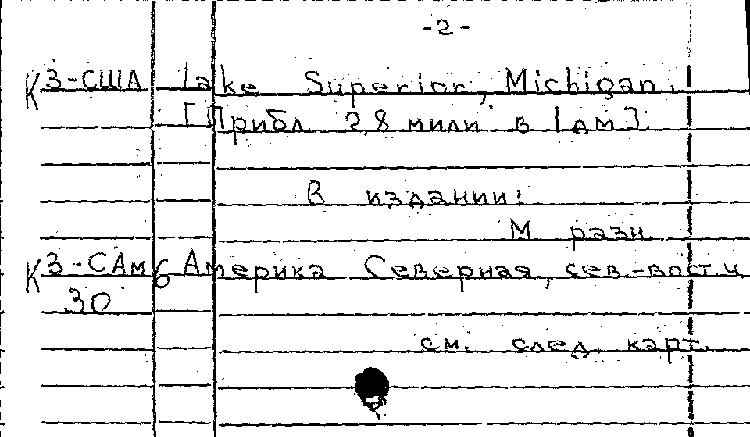 -2-
К 3-США Lake Superior, Michigan.
[Прибл. 28 мили в 1 дм]
В издании:
М разн.
К 3-САм 6 Америка Северная, сев.-вост. ч.
30
см. след. карт.